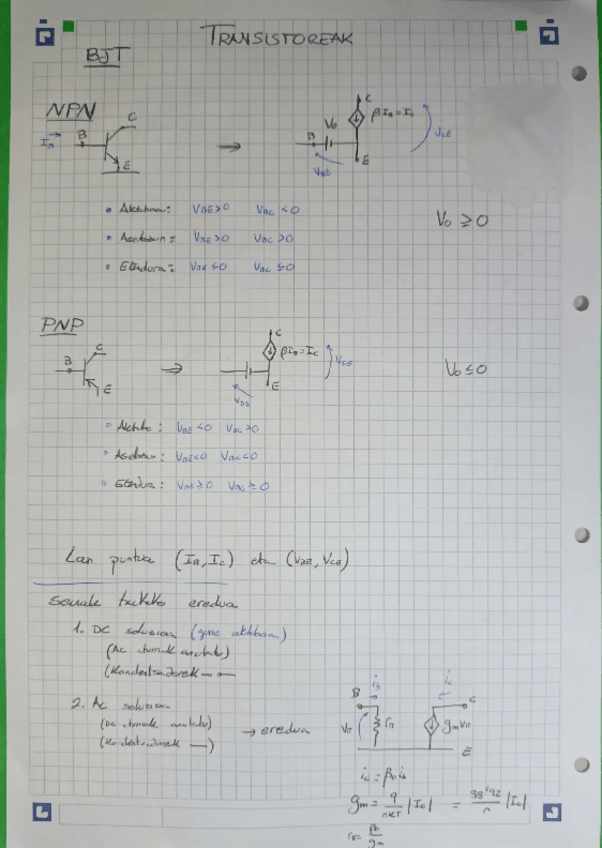 TRANSISTOREAK
BJT
NPN
C
IB B
E
V0 C βIB = IC
B VCE
E
VBE
• Aktiboa: VBE>0 VBC<0
V0 ≥ 0
• Asetasun: VBE>0 VBC>0
• Etendura: VBE≤0 VBC≤0
PNP
C
B
E
C
βIB = IC VCE
E
VBE
V0 ≤ 0
• Aktibo: VBE<0 VBC>0
• Asetasun: VBE<0 VBC<0
• Etendua: VBE≥0 VBC≥0
Lan puntua (IB, IC) eta (VBE, VCE)
Seinale txikiko eredua
1. DC soluzioa (gune aktiboan)
(AC iturriak anulatu)
(Kondentsadoreak
2. AC soluzioa
(DC iturriak anulatu)
(Kondentsadoreak —)
→ eredua
ib ic
B C
Vπ rπ gmVπ
E
ic = β0 ib
gm = q/nKT |IC| = 38'92/n |IC|
rπ = β0/gm